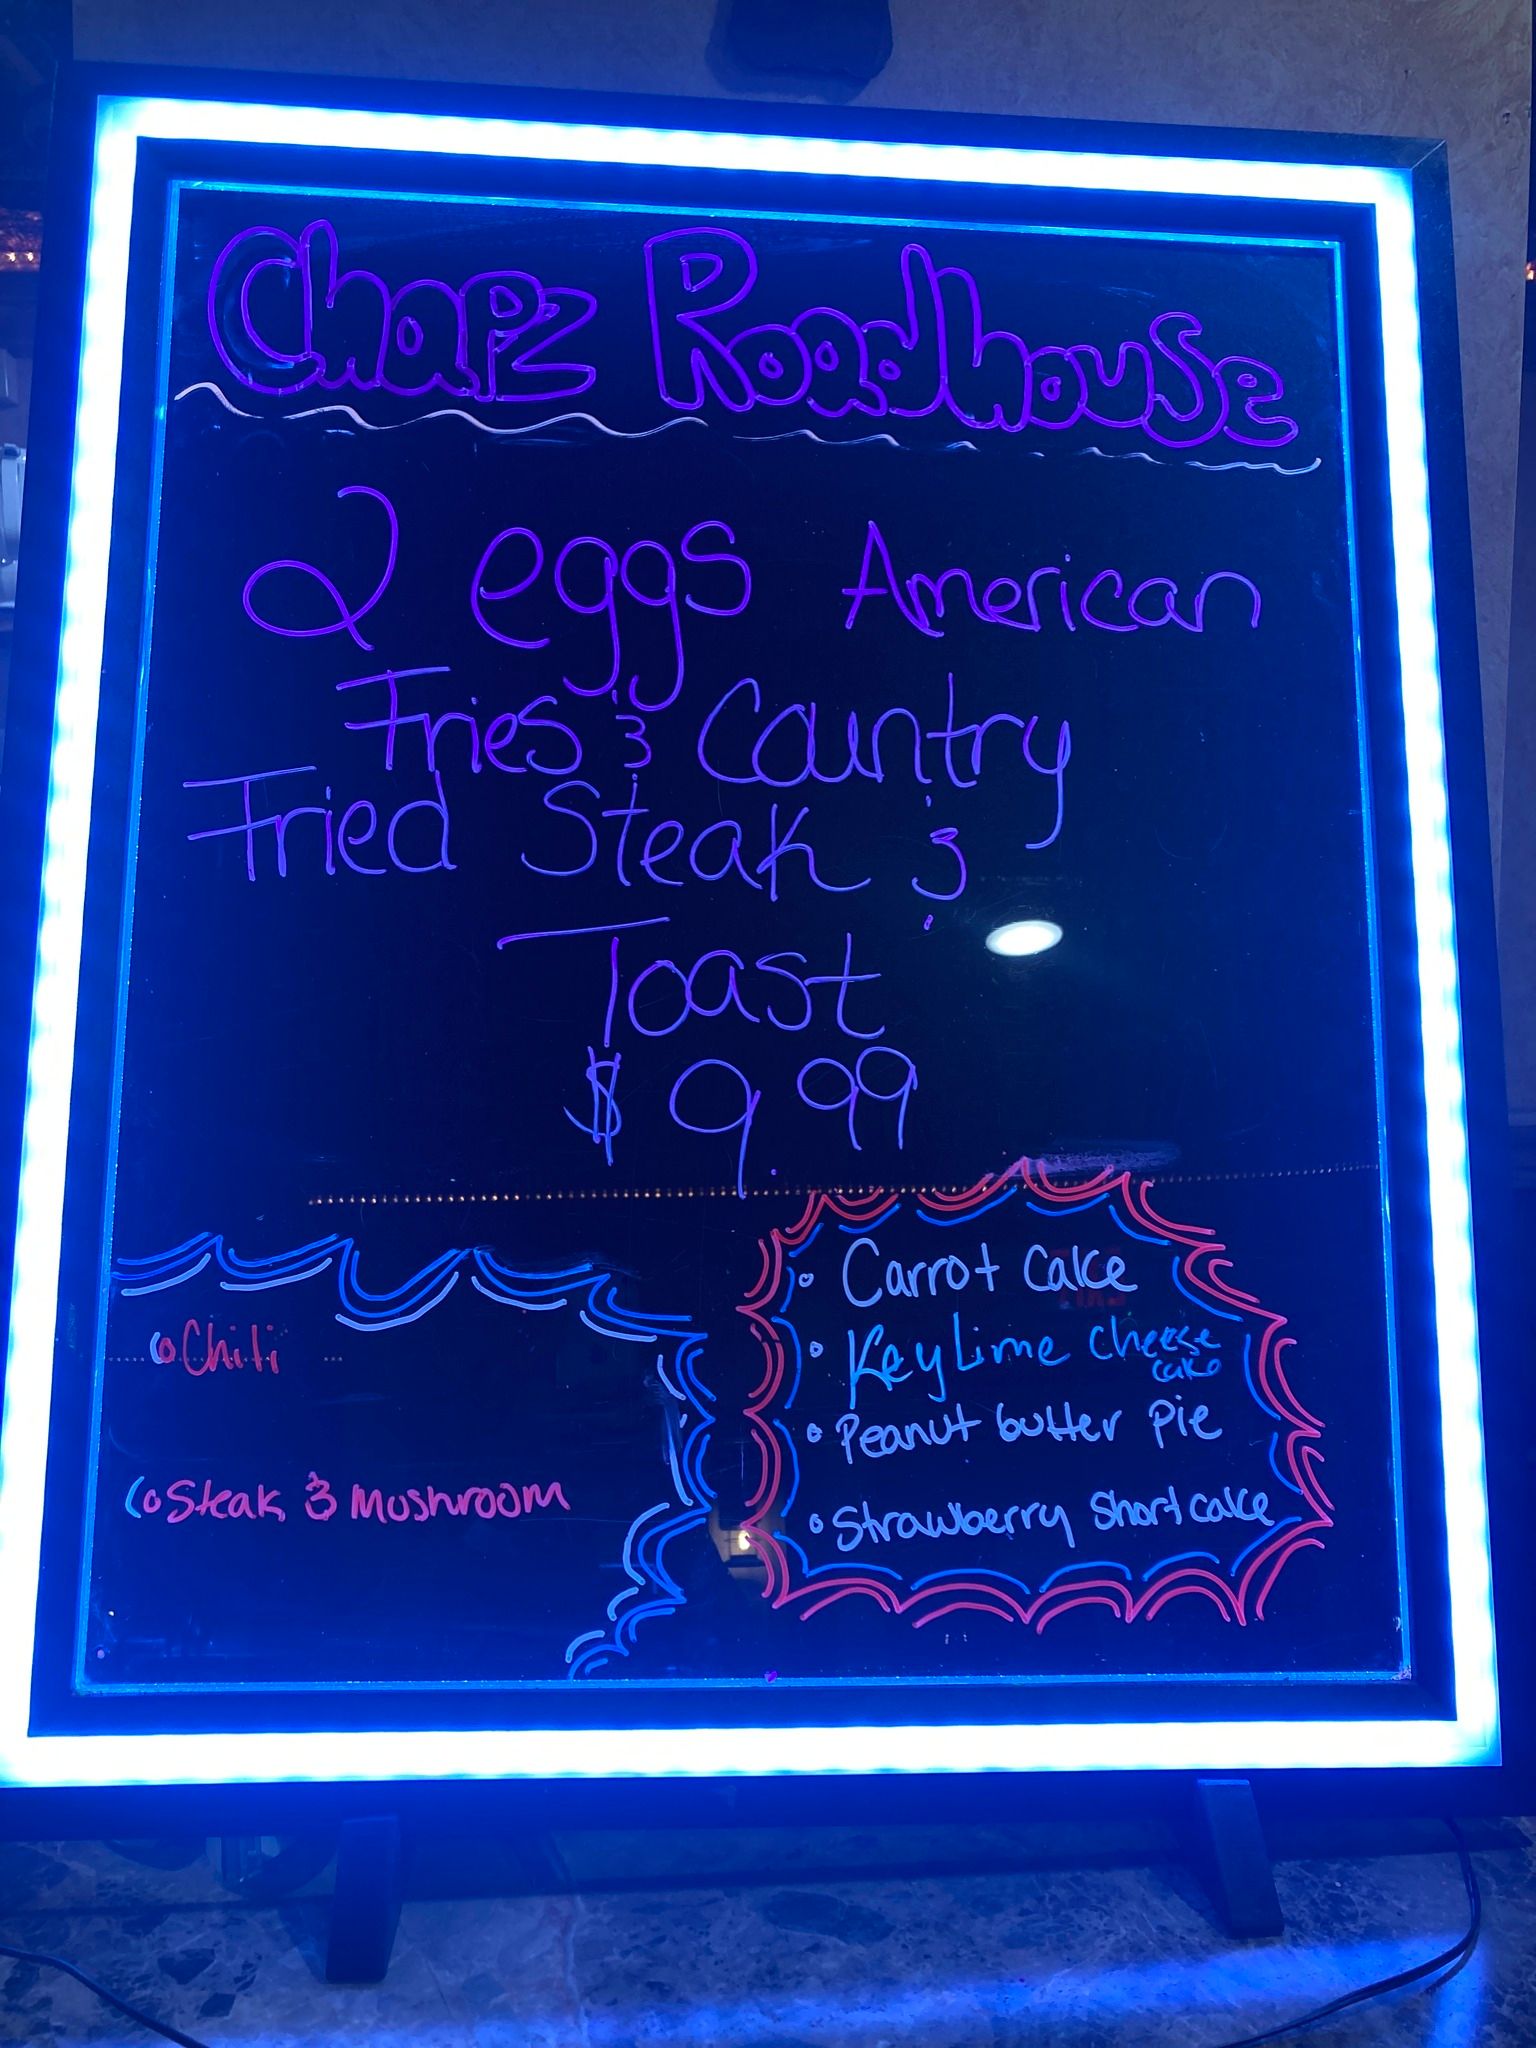 Chapz Roadhouse
2 eggs American
Fries & Country
Fried Steak &
Toast
$9.99
Chili
Steak & Mushroom
Carrot Cake
Key Lime Cheese
cake
Peanut butter pie
Strawberry Shortcake